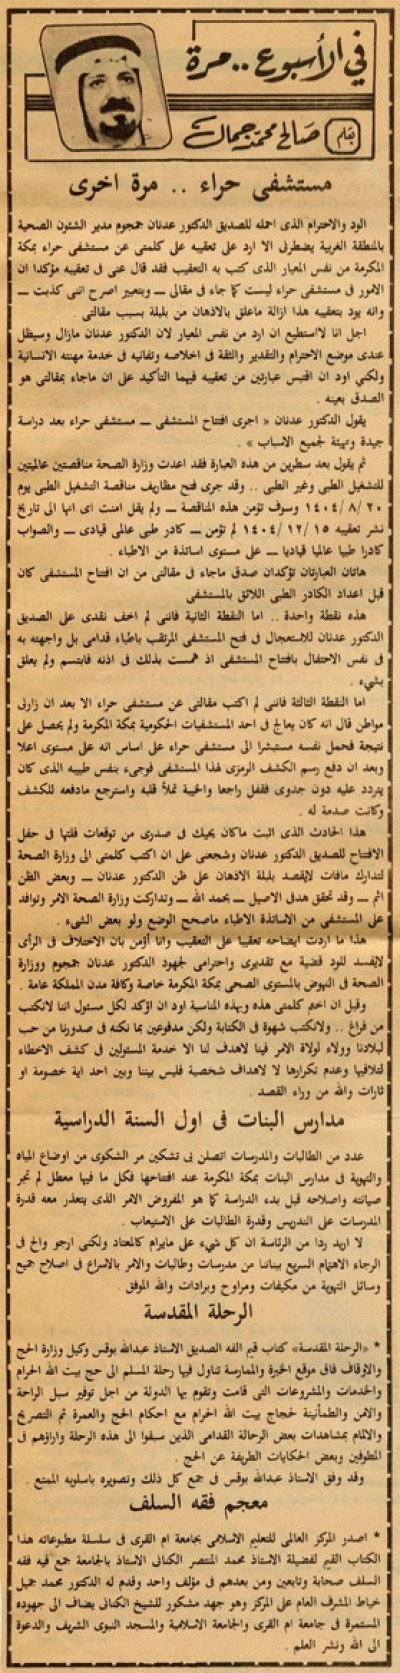 في الأسبوع .. مرة
بقلم صالح محمد جمال
مستشفى حراء .. مرة اخرى
الود والاحترام الذى احمله للصديق الدكتور عدنان جمجوم مدير الشئون الصحية
بالمنطقة الغربية يضطرنى الا ارد على تعقيبه على كلمتى عن مستشفى حراء بمكة
المكرمة من نفس المعيار الذى كتب به التعقيب فقد قال عنى فى تعقيبه مؤكدا ان
الامور فى مستشفى حراء ليست كما جاء فى مقالى ــ وبتعبير اصرح اننى كذبت ــ
وانه يود بتعقيبه هذا ازالة ماعلق بالاذهان من بلبلة بسبب مقالتى .
اجل انا لااستطيع ان ارد من نفس المعيار لان الدكتور عدنان مازال وسيظل
عندى موضع الاحترام والتقدير والثقة فى اخلاصه وتفانيه فى خدمة مهنته الانسانية
ولكنى اود ان اقتبس عبارتين من تعقيبه فيهما التأكيد على ان ماجاء بمقالتى هو
الصدق بعينه .
يقول الدكتور عدنان « اجرى افتتاح المستشفى ــ مستشفى حراء بعد دراسة
جيدة وتهيئة لجميع الاسباب » .
ثم يقول بعد سطرين من هذه العبارة فقد اعدت وزارة الصحة مناقصتين عالميتين
للتشغيل الطبى وغير الطبى .. وقد جرى فتح مظاريف مناقصة التشغيل الطبى يوم
٢٠ /٨ /١٤٠٤ وسوف تؤمن هذه المناقصة ــ ولم يقل امنت اى انها الى تاريخ
نشر تعقيبه ١٥ /١٢ /١٤٠٤ لم تؤمن ــ كادر طبى عالمى قيادى ــ والصواب
كادرا طبيا عالميا قياديا ــ على مستوى اساتذة من الاطباء .
هاتان العبارتان تؤكدان صدق ماجاء فى مقالتى من ان افتتاح المستشفى كان
قبل اعداد الكادر الطبى اللائق بالمستشفى
هذه نقطة واحدة .. اما النقطة الثانية فاننى لم اخف نقدى على الصديق
الدكتور عدنان للاستعجال فى فتح المستشفى المرتقب باطباء قدامى بل واجهته به
فى نفس الاحتفال بافتتاح المستشفى اذ همست بذلك فى اذنه فابتسم ولم يعلق
بشىء .
اما النقطة الثالثة فاننى لم اكتب مقالتى عن مستشفى حراء الا بعد ان زارنى
مواطن قال انه كان يعالج فى احد المستشفيات الحكومية بمكة المكرمة ولم يحصل على
نتيجة فحمل نفسه مستبشرا الى مستشفى حراء على اساس انه على مستوى اعلا
وبعد ان دفع رسم الكشف الرمزى لهذا المستشفى فوجىء بنفس طبيبه الذى كان
يتردد عليه دون جدوى فقفل راجعا والخيبة تملأ قلبه واسترجع مادفعه للكشف
وكانت صدمة له .
هذا الحادث الذى اثبت ماكان يحيك فى صدرى من توقعات قلتها فى حفل
الافتتاح للصديق الدكتور عدنان وشجعنى على ان اكتب كلمتى الى وزارة الصحة
لتدارك مافات لايقصد بلبلة الاذهان على ظن الدكتور عدنان ــ وبعض الظن
اثم ــ وقد تحقق هدفى الاصيل ــ بحمد الله ــ وتداركت وزارة الصحة الامر وتوافد
على المستشفى من الاساتذة الاطباء ماصحح الوضع ولو بعض الشىء .
هذا ما اردت ايضاحه تعقيبا على التعقيب وانا أؤمن بان الاختلاف فى الرأى
لايفسد للود قضية مع تقديرى واحترامى لجهود الدكتور عدنان جمجوم ووزارة
الصحة فى النهوض بالمستوى الصحى بمكة المكرمة خاصة وكافة مدن المملكة عامة .
وقبل ان اختم كلمتى هذه وبهذه المناسبة اود ان اؤكد لكل مسئول اننا لانكتب
من فراغ .. ولانكتب شهوة فى الكتابة ولكن مدفوعين بما نكنه فى صدورنا من حب
لبلادنا وولاء لولاة الامر فينا لاهدف لنا الا خدمة المسئولين فى كشف الاخطاء
لتلافيها وعدم تكرارها لا لاهداف شخصية فليس بيننا وبين احد اية خصومة او
ثارات والله من وراء القصد .
مدارس البنات فى اول السنة الدراسية
عدد من الطالبات والمدرسات اتصلن بى تشكين مر الشكوى من اوضاع المياه
والتهوية فى مدارس البنات بمكة المكرمة عند افتتاحها فكل ما فيها معطل لم تجر
صيانته واصلاحه قبل بدء الدراسة كما هو المفروض الامر الذى يتعذر معه قدرة
المدرسات على التدريس وقدرة الطالبات على الاستيعاب .
لا اريد ردا من الرئاسة ان كل شىء على مايرام كالمعتاد ولكنى ارجو والح فى
الرجاء الاهتمام السريع ببناتنا من مدرسات وطالبات والامر بالاسراع فى اصلاح جميع
وسائل التهوية من مكيفات ومراوح وبرادات والله الموفق .
الرحلة المقدسة
* «الرحلة المقدسة» كتاب قيم الفه الصديق الاستاذ عبدالله بوقس وكيل وزارة الحج
والاوقاف فاق موقع الخبرة والممارسة تناول فيها رحلة المسلم الى حج بيت الله الحرام
والخدمات والمشروعات التى قامت وتقوم بها الدولة من اجل توفير سبل الراحة
والامن والطمأنينة لحجاج بيت الله الحرام مع احكام الحج والعمرة ثم التصريح
والالمام بمشاهدات بعض الرحالة القدامى الذين سبقوا الى هذه الرحلة واراؤهم فى
المطوفين وبعض الحكايات الطريفة عن الحج .
وقد وفق الاستاذ عبدالله بوقس فى جمع كل ذلك وتصويره باسلوبه الممتع .
معجم فقه السلف
* اصدر المركز العالمى للتعليم الاسلامى بجامعة ام القرى فى سلسلة مطبوعاته هذا
الكتاب القيم لفضيلة الاستاذ محمد المنتصر الكتانى الاستاذ بالجامعة جمع فيه فقه
السلف صحابة وتابعين ومن بعدهم فى مؤلف واحد وقدم له الدكتور محمد جميل
خياط المشرف العام على المركز وهو جهد مشكور للشيخ الكتانى يضاف الى جهوده
المستمرة فى جامعة ام القرى والجامعة الاسلامية والمسجد النبوى الشريف والدعوة
الى الله ونشر العلم .